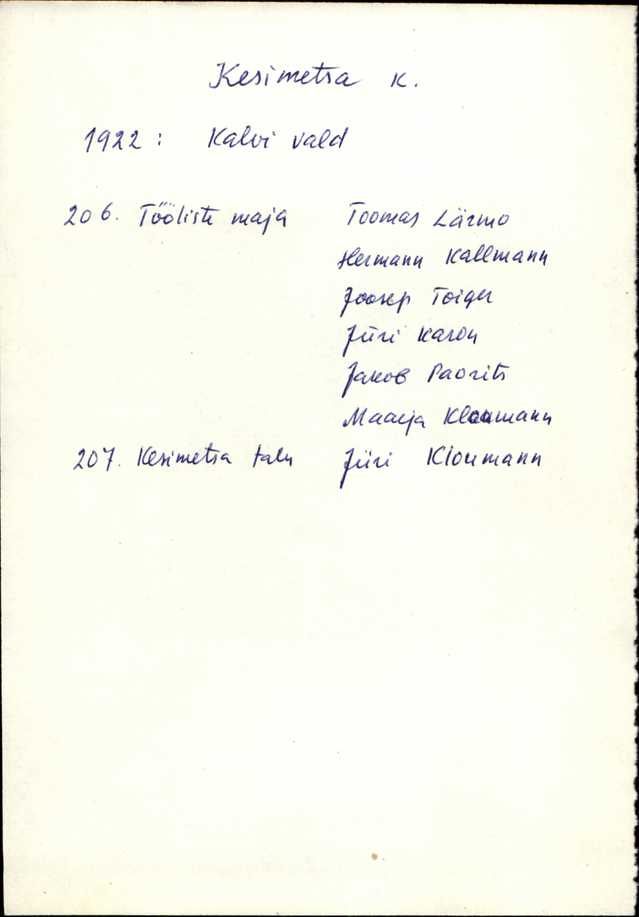 Kesimetsa K.
1922: Kalvi vald
206. Tööliste maja Toomas Lärmo
Hermann Kallmann
Joosep Toiger
Jüri Karon
Jakob Paorits
Maarja
207. Kesimetsa talu Jüri Kloumann